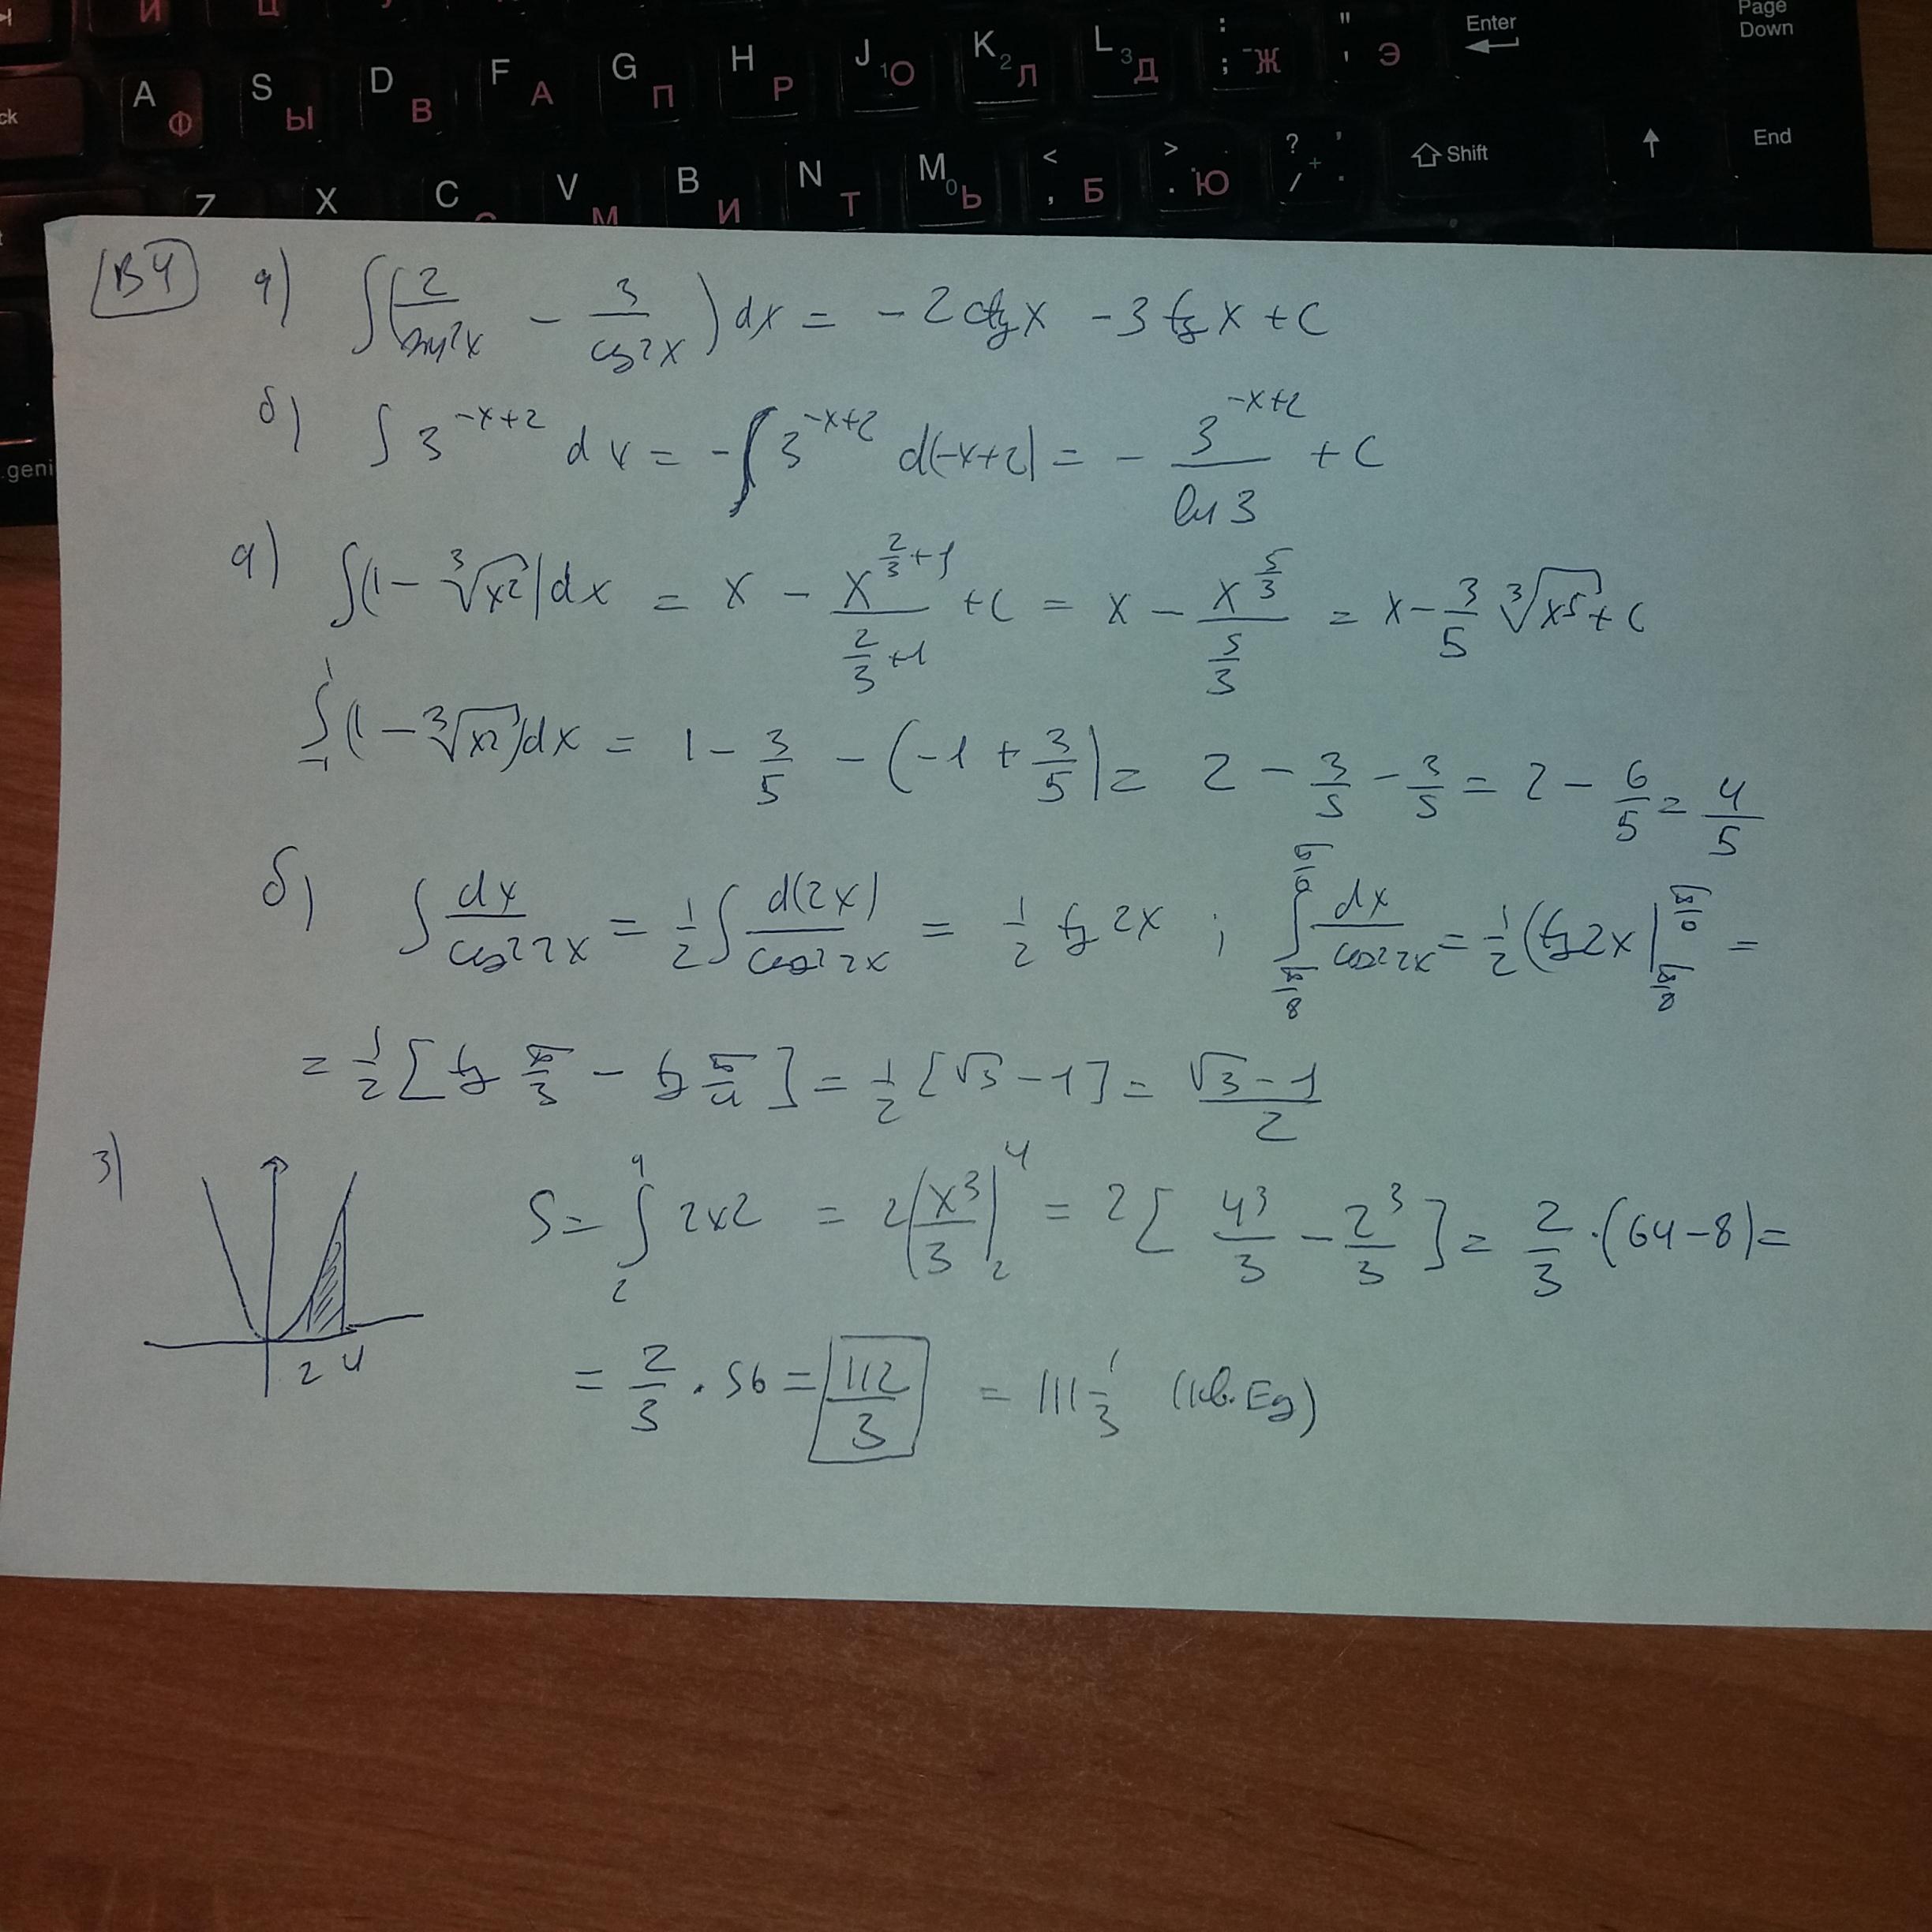 И Ц
A Ф S Ы D В F А G П H Р J 1 О K 2 Л L 3 Д : ; Ж " ' Э Enter Page Down
ck
Z X C С V М B И N Т M 0 Ь < , Б > . Ю ? / + , . Shift ↑ End
.geni
В4 а) ∫(2/sin²x − 3/cos²x)dx = −2ctgx − 3tgx + C
б) ∫3^(−x+2) dx = −∫3^(−x+2) d(−x+2) = − 3^(−x+2)/ln3 + C
а) ∫(1−∛x²)dx = x − x^(2/3+1)/(2/3+1) + C = x − x^(5/3)/(5/3) = x − 3/5 ∛x⁵ + C
∫₋₁¹(1−∛x²)dx = 1 − 3/5 − (−1 + 3/5) = 2 − 3/5 − 3/5 = 2 − 6/5 = 4/5
б) ∫dx/cos²2x = 1/2 ∫d(2x)/cos²2x = 1/2 tg2x ; ∫_(π/8)^(π/6) dx/cos²2x = 1/2 (tg2x|_(π/8)^(π/6) =
= 1/2 [tg π/3 − tg π/4] = 1/2 [√3 − 1] = (√3−1)/2
3) 2 4 S = ∫₂⁴ 2x2 = 2(x³/3|₂⁴ = 2[4³/3 − 2³/3] = 2/3 · (64−8) =
= 2/3 · 56 = 112/3 = 111 1/3 (кв. Ед)